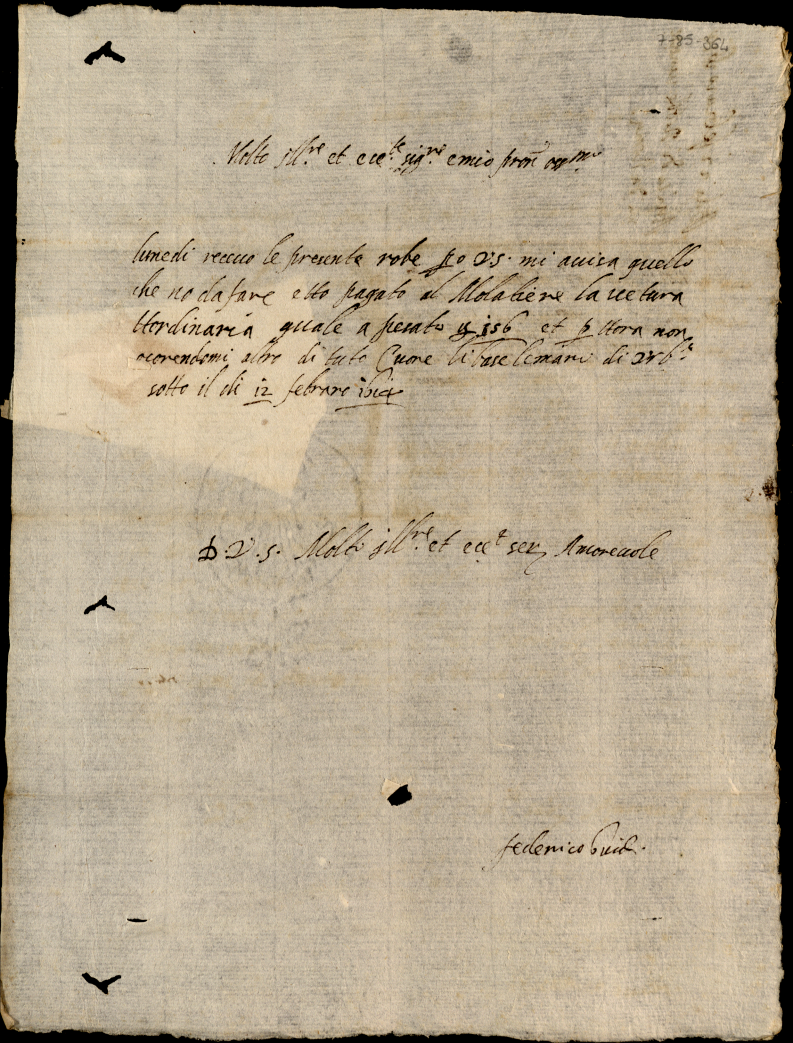 7-85-364
Molto Ill.re et ecc.te sig.re e mio pron
lunedi receuo le presente robe V.S. mi auisa quello
che no da fare e to pagato al Molatiere la uetura
ttordinaria quale a pesato 156 et p ttora non
ocorendomi altro di tuto Cuore li base le mani di
sotto il di 12 febraro
D.V.S. Molto Ill.re et ecc.t ser. Amoreuole
federico